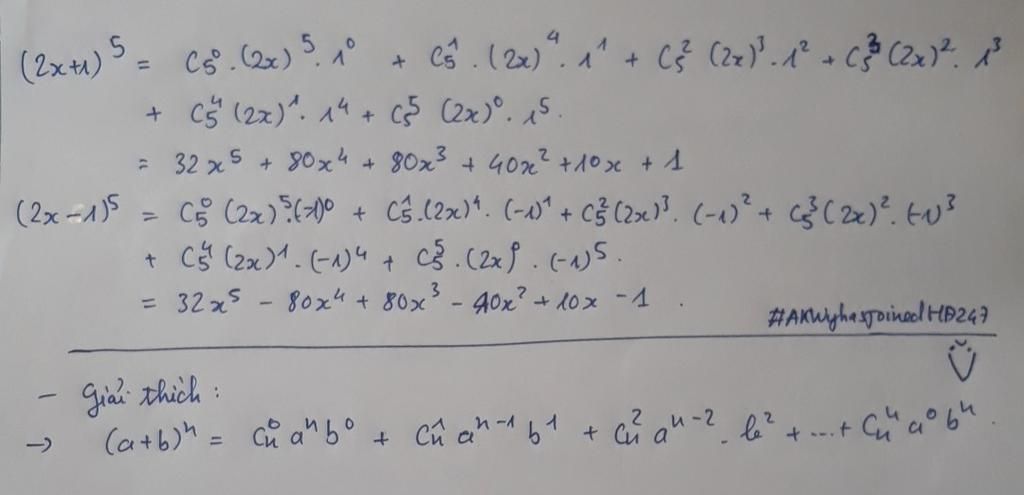 (2x+1)⁵ = C₅⁰.(2x)⁵.1⁰ + C₅¹.(2x)⁴.1¹ + C₅²(2x)³.1² + C₅³(2x)².1³
+ C₅⁴(2x)¹.1⁴ + C₅⁵(2x)⁰.1⁵.
= 32x⁵ + 80x⁴ + 80x³ + 40x² + 10x + 1
(2x-1)⁵ = C₅⁰(2x)⁵.(-1)⁰ + C₅¹.(2x)⁴.(-1)¹ + C₅²(2x)³.(-1)² + C₅³(2x)².(-1)³
+ C₅⁴(2x)¹.(-1)⁴ + C₅⁵.(2x)⁰.(-1)⁵.
= 32x⁵ - 80x⁴ + 80x³ - 40x² + 10x - 1.
#AKWyhasjoinedHD247
- Giải thích:
→ (a+b)ⁿ = Cₙ⁰aⁿb⁰ + Cₙ¹aⁿ⁻¹b¹ + Cₙ²aⁿ⁻².b² + ... + Cₙⁿa⁰bⁿ.